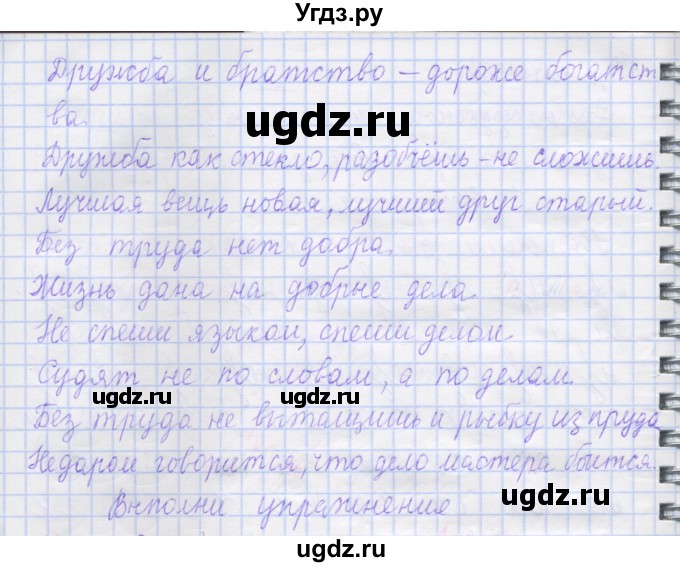 Угдз.ру
Дружба и братство – дороже богатст
ва.
ugdz.ru
Дружба как стекло, разобъёшь – не сложишь.
Лучшая вещь новая, лучший друг старый.
Без труда нет добра.
Жизнь дана на добрые дела.
Не спеши языком, спеши делом.
Судят не по словам, а по делам.
ugdz.ru ugdz.ru
Без труда не вытащишь и рыбку из пруда
Недаром говорится, что дело мастера боится.
Выполни упражнения
ugdz.ru ugdz.ru
ugdz.ru